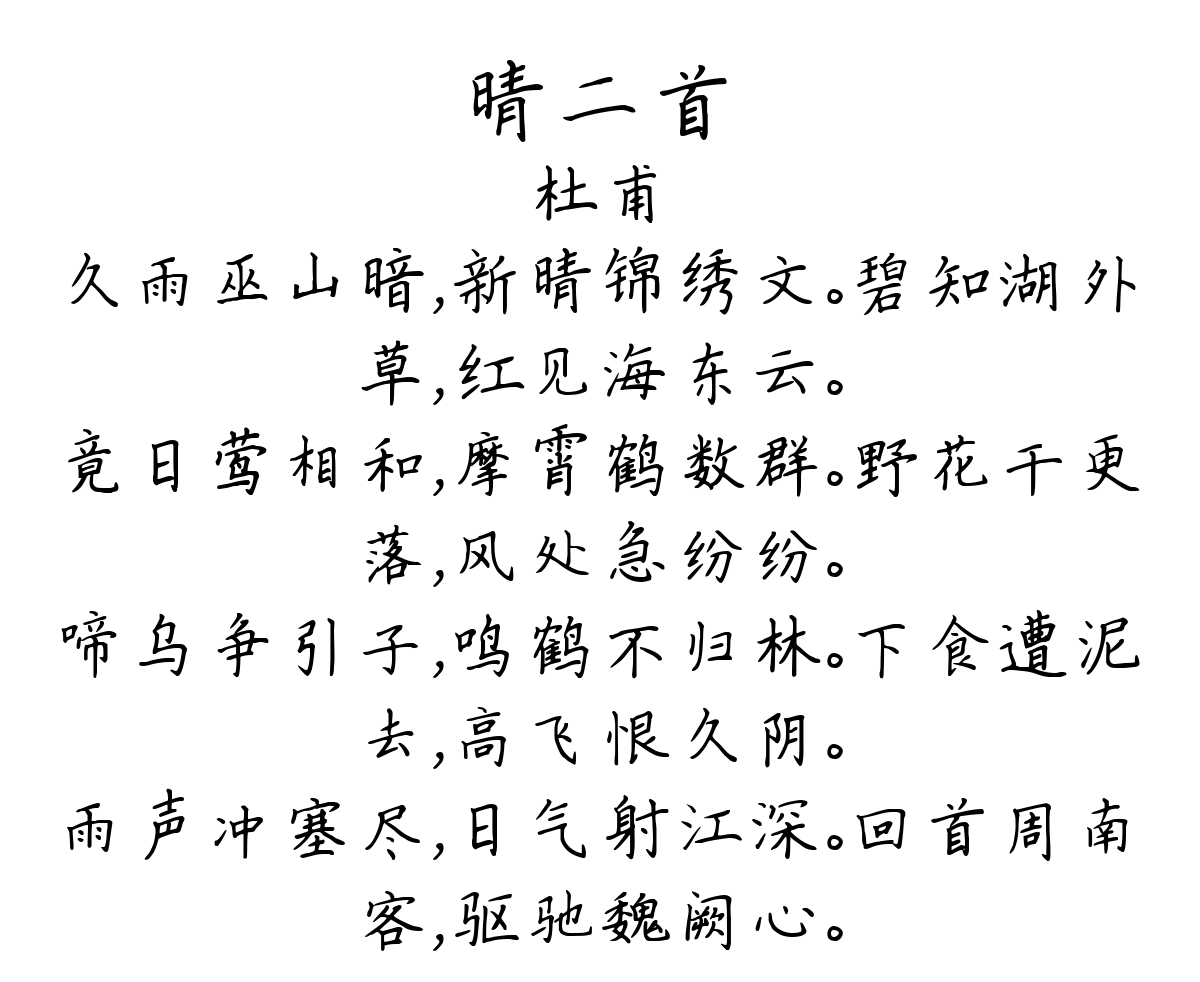 晴二首
杜甫
久雨巫山暗,新晴锦绣文。碧知湖外
草,红见海东云。
竟日莺相和,摩霄鹤数群。野花干更
落,风处急纷纷。
啼乌争引子,鸣鹤不归林。下食遭泥
去,高飞恨久阴。
雨声冲塞尽,日气射江深。回首周南
客,驱驰魏阙心。